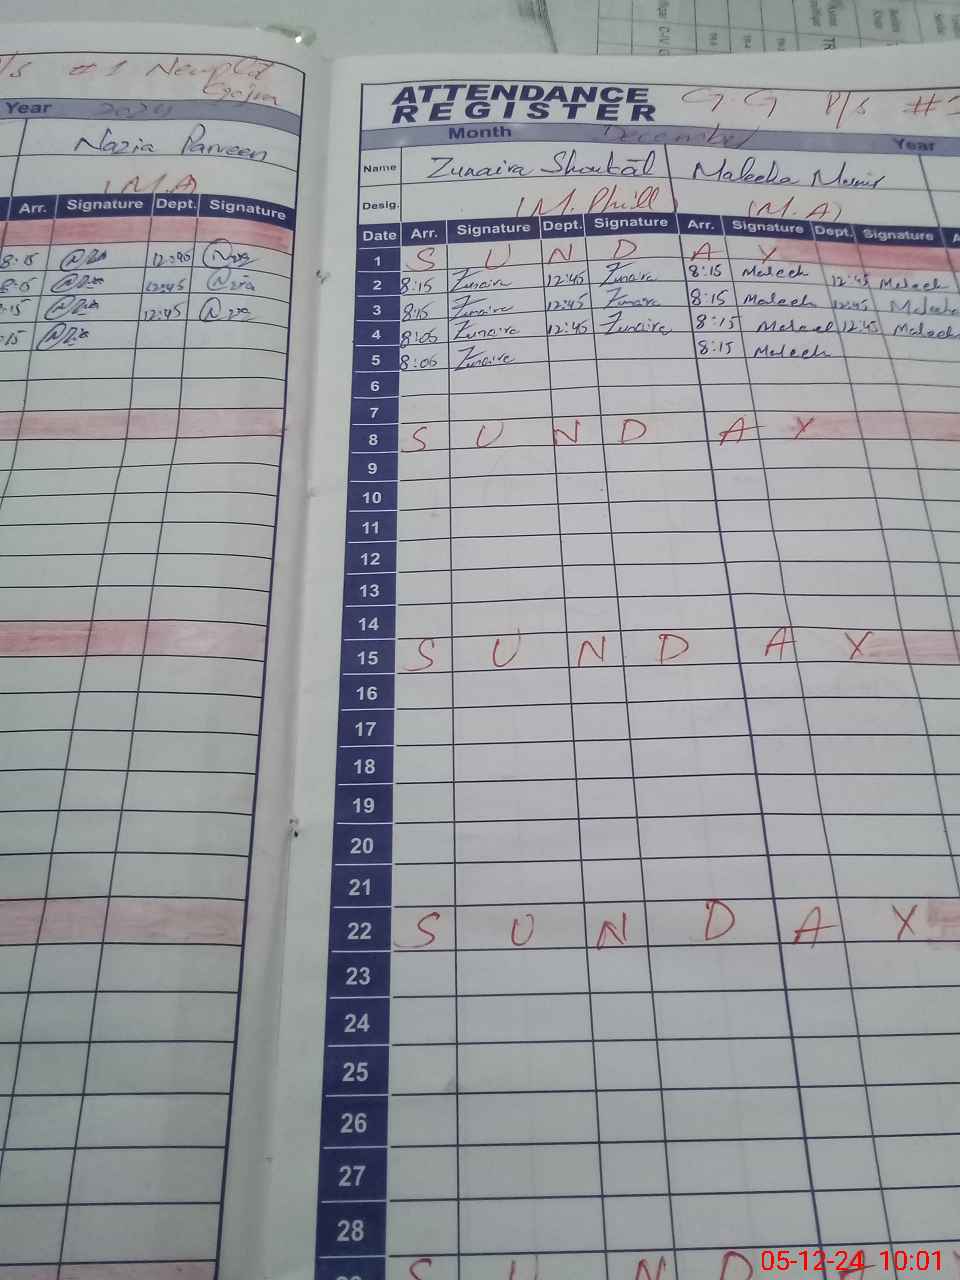 # 1
Year 2024
Nazia Parveen
(M.A)
Arr. Signature Dept. Signature
8:15 12:45
8:05 12:45
:15 12:45
:15
ATTENDANCE
REGISTER
G.G P/S #
Month December Year
Name Zunaira Shoukat Maleeha Munir
Desig. (M.Phill) (M.A)
Date Arr. Signature Dept. Signature Arr. Signature Dept. Signature A
1 S U N D A Y
2 8:15 Zunaira 12:45 Zunaira 8:15 Maleeh 12:45 Maleeh
3 8:15 Zunaira 12:45 Zunaira 8:15 Maleeh 12:45 Maleeh
4 8:05 Zunaira 12:45 Zunaira 8:15 Maleeh 12:45 Maleeh
5 8:06 Zunaira 8:15 Maleeh
6
7
8 S U N D A Y
9
10
11
12
13
14
15 S U N D A Y
16
17
18
19
20
21
22 S U N D A Y
23
24
25
26
27
28
S U N D A
05-12-24 10:01